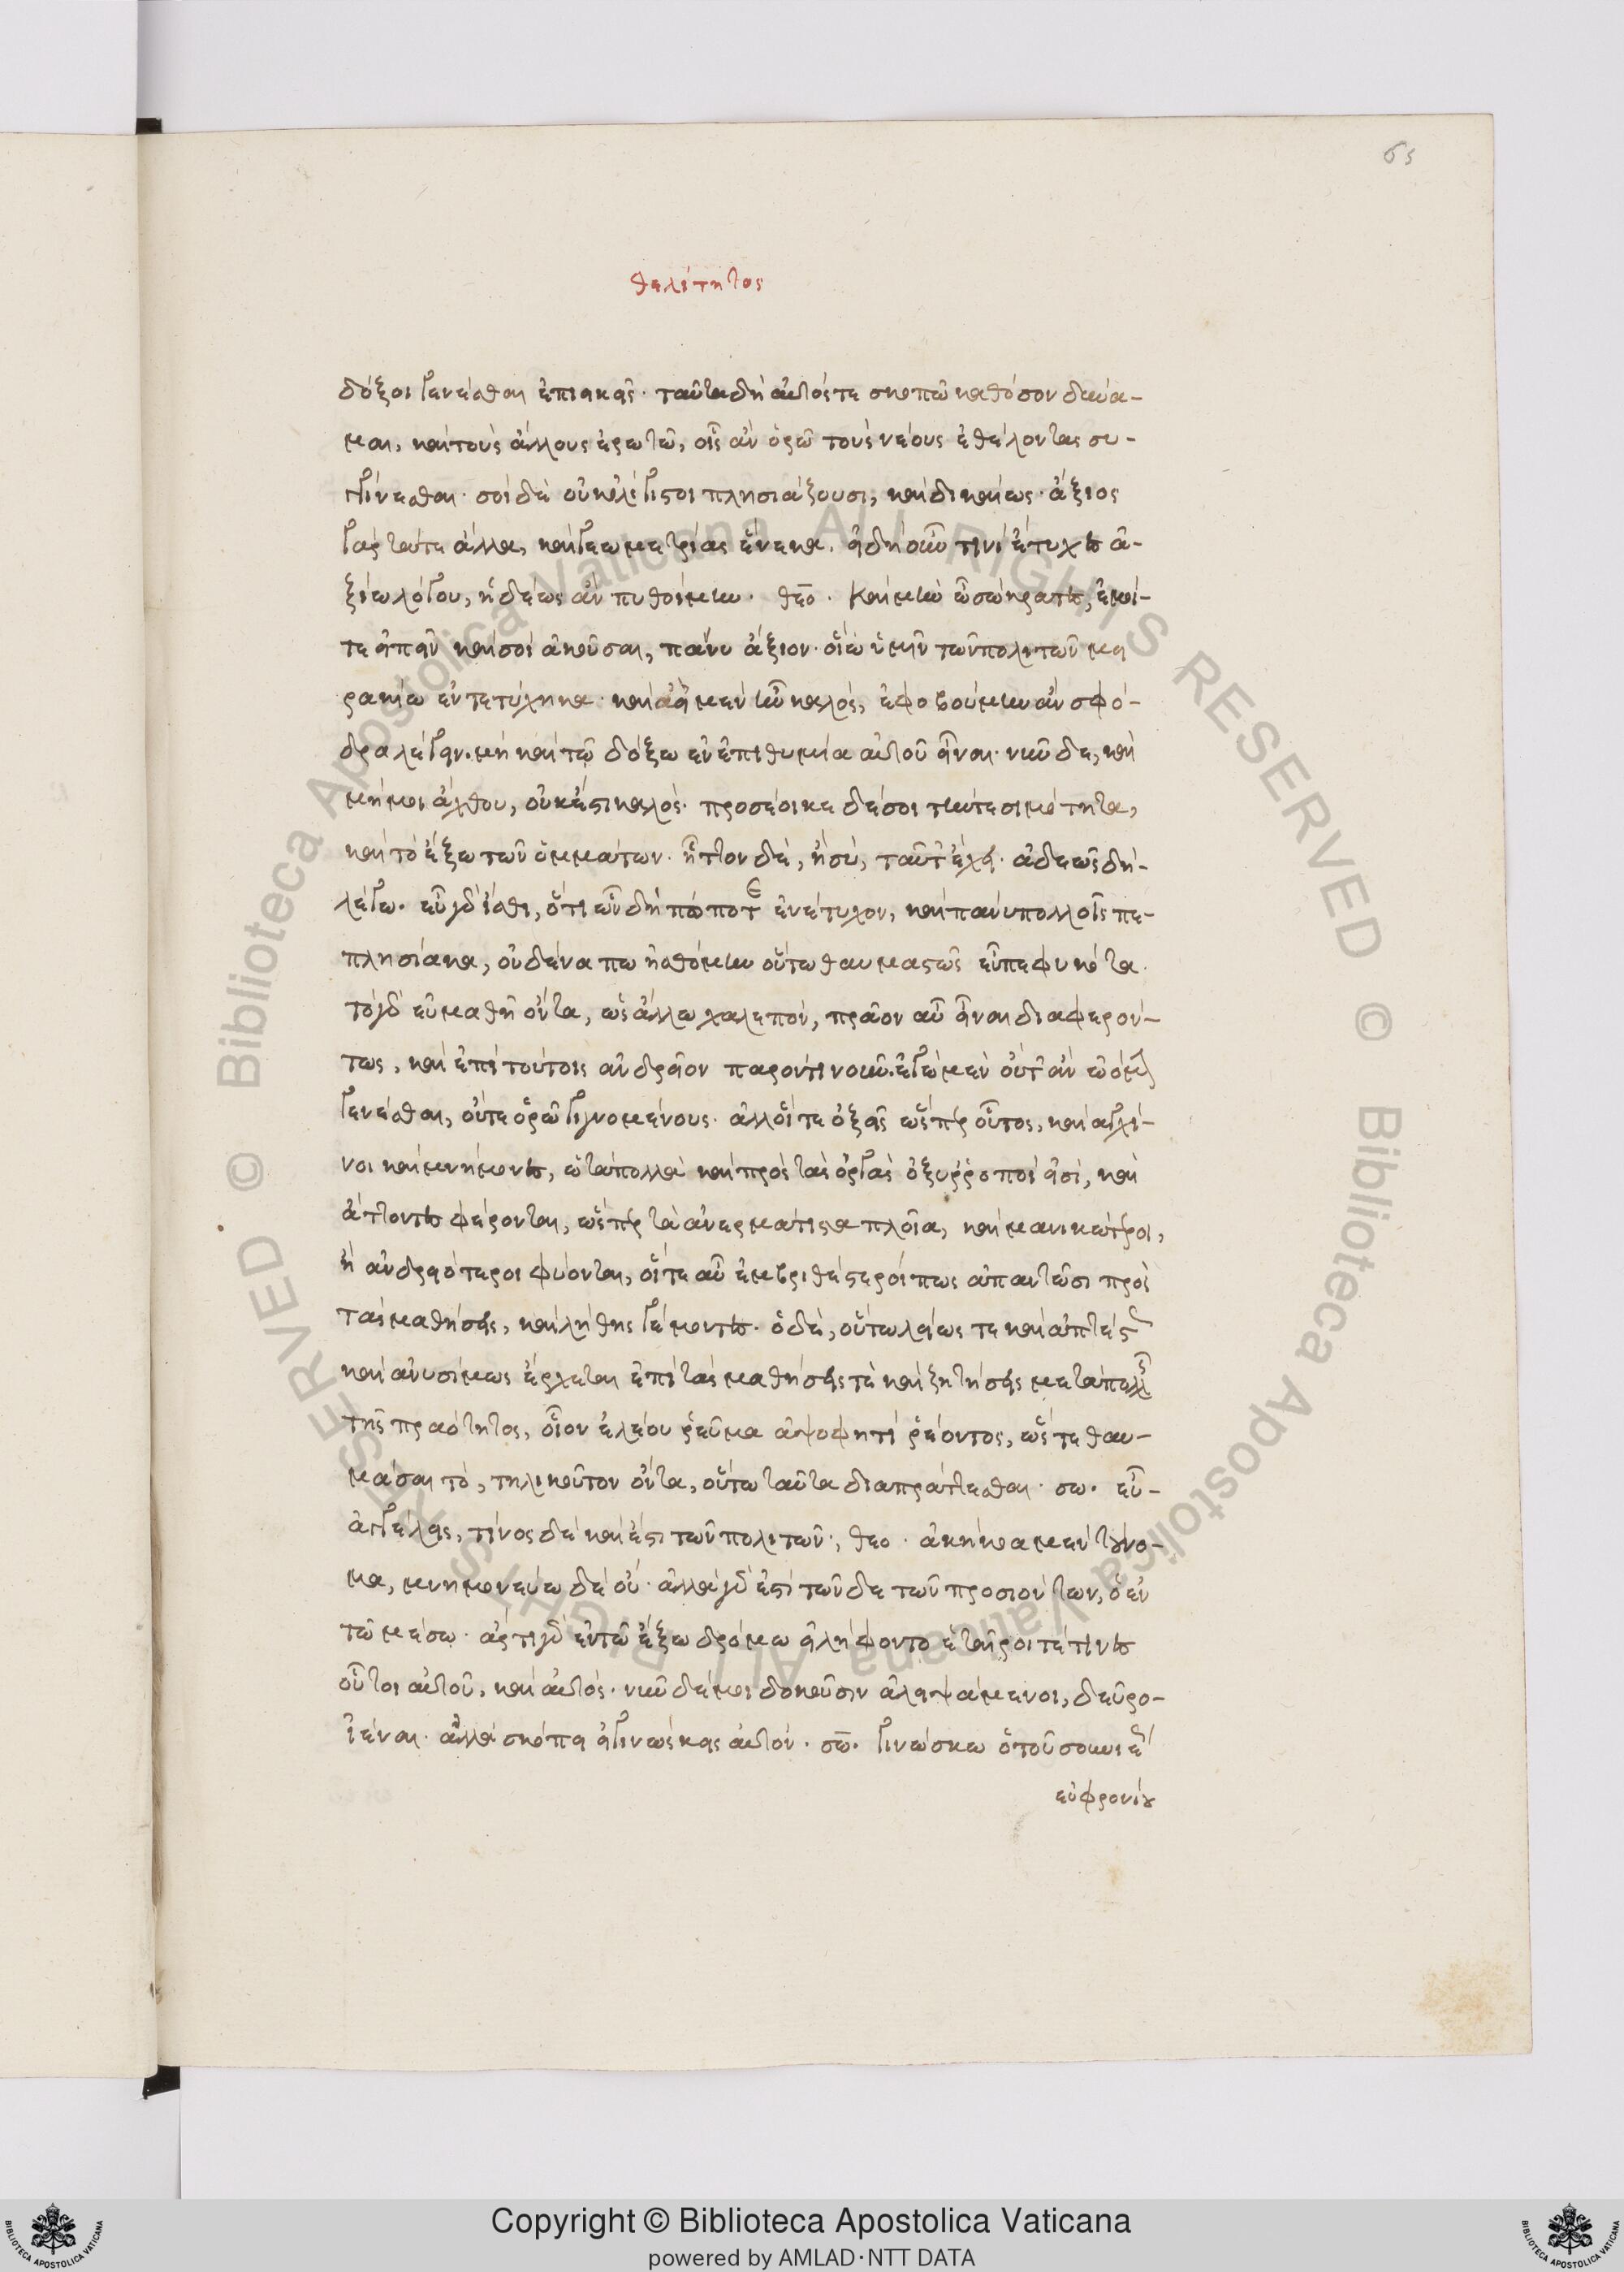 65
θεαίτητος
δόξοι γενέσθαι ἐπιεικεῖς· ταῦτα δὴ αὐτός τε σκοπῶ καθόσον δύνα-
μαι, καὶ τοὺς ἄλλους ἐρωτῶ, οἷς ἂν ὁρῶ τοὺς νέους ἐθέλοντας συ-
γγίνεσθαι. σοὶ δὲ οὐκ ὀλίγιστοι πλησιάζουσι, καὶ δικαίως· ἄξιος
γὰρ τά τε ἄλλα, καὶ γεωμετρίας ἕνεκα. εἰ δὴ οὖν τινὶ ἔτυχες ἀ-
ξίω λόγου, ἡδέως ἂν πυθοίμην. θεο. Καὶ μὴν ὦ σώκρατες, ἐμοί-
τε εἰπεῖν καὶ σοὶ ἀκοῦσαι, πάνυ ἄξιον· οἵω ὑμῖν τῶν πολιτῶν μει
ρακίω ἐντετύχηκα· καὶ εἰ μὲν ἦν καλός, ἐφοβούμην ἂν σφό-
δρα λέγειν. μὴ καί τω δόξω ἐν ἐπιθυμία αὐτοῦ εἶναι. νῦν δε, καὶ
μή μοι ἄχθου, οὐκ ἔστι καλός. προσέοικε δὲ σοὶ τήν τε σιμότητα,
καὶ τὸ ἔξω τῶν ὀμμάτων. ἧττον δὲ, ἢ σὺ, ταῦτ' ἔχει. ἀδεῶς δὴ-
λέγω. εὖ γὰρ ἴσθι, ὅτι ὧν δὴ πώποτε ἐνέτυχον, καὶ πάνυ πολλοῖς πε-
πλησίακα, οὐδένα πω ἠσθόμην οὕτω θαυμαστῶς εὖ πεφυκότα.
τὸ γὰρ εὐμαθῆ ὄντα, ὡς ἄλλω χαλεπὸν, πρᾶον αὖ εἶναι διαφερόν-
τως, καὶ ἐπὶ τούτοις ἀνδρεῖον παρ' ὁντινοῦν. ἐγὼ μὲν οὔτ' ἂν ὠόμην
γενέσθαι, οὔτε ὁρῶ γιγνομένους. ἀλλ' οἵ τε ὀξεῖς ὥσπερ οὗτος, καὶ ἀγχί-
νοι καὶ μνήμονες, ὡς τὰ πολλὰ καὶ πρὸς τὰς ὀργὰς ὀξύρροποί εἰσι, καὶ
ἄττοντες φέρονται, ὥσπερ τὰ ἀνερμάτιστα πλοῖα, καὶ μανικώτεροι,
ἢ ἀνδρειότεροι φύονται, οἵ τε αὖ ἐμβριθέστεροί πως ἀπαντῶσι πρὸς
τὰς μαθήσεις, καὶ λήθης γέμοντες. ὁ δὲ, οὕτω λείως τε καὶ ἀπταίστως
καὶ ἀνυσίμως ἔρχεται ἐπὶ τὰς μαθήσεις τὲ καὶ ζητήσεις μετὰ πολλῆς
τῆς πραότητος, οἷον ἐλέου ῥεῦμα ἀψοφητὶ ῥέοντος, ὥστε θαυ-
μάσαι τὸ, τηλικοῦτον ὄντα, οὕτω ταῦτα διαπράττεσθαι. σω. εὖ-
ἀγγέλεις, τίνος δὲ καὶ ἔστι τῶν πολιτῶν; θεο. ἀκήκοα μὲν τοὔνο-
μα, μνημονεύω δὲ οὔ. ἀλλὰ γὰρ ἐστὶ τῶν δε τῶν προσιόντων, ὁ ἐν
τῶ μέσω. ἄρτι γὰρ ἐν τῶ ἔξω δρόμω ἠλείφοντο ἑταῖροι τέ τινες
οὗτοι αὐτοῦ, καὶ αὐτός. νῦν δέ μοι δοκοῦσιν ἀλειψάμενοι, δεῦρο-
ἰέναι. ἀλλὰ σκόπει εἰ γινώσκεις αὐτόν. σω. γινώσκω ὁ τοῦ σουνιέως
εὐφρονίου